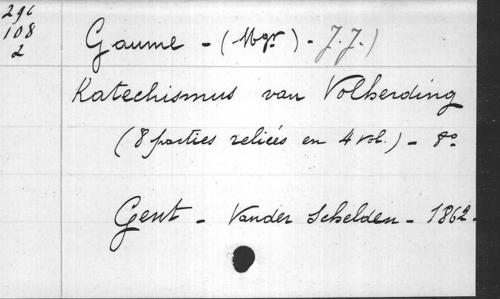 296
108
2
Gaume - (Mgr) - J.J.)
Katechismus van Volherding
(8 parties reliées en 4 vol.) - 8o
Gent - Vander Schelden - 1862.